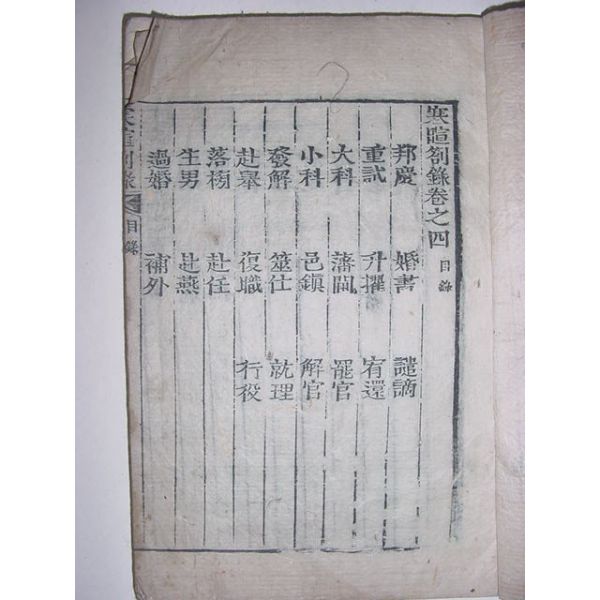 寒暄劄錄卷之四 目錄
邦慶 婚書 譴謫
重試 升擢 宥還
大科 藩閫 罷官
小科 邑鎭 解官
發解 筮仕 就理
赴舉 復職 行役
落榜 赴任
生男 赴燕
過婚 補外
暄劄錄 目錄